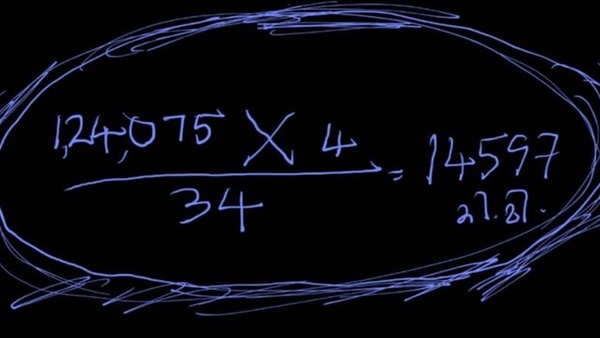 1,24,075 X 4
34
= 14597